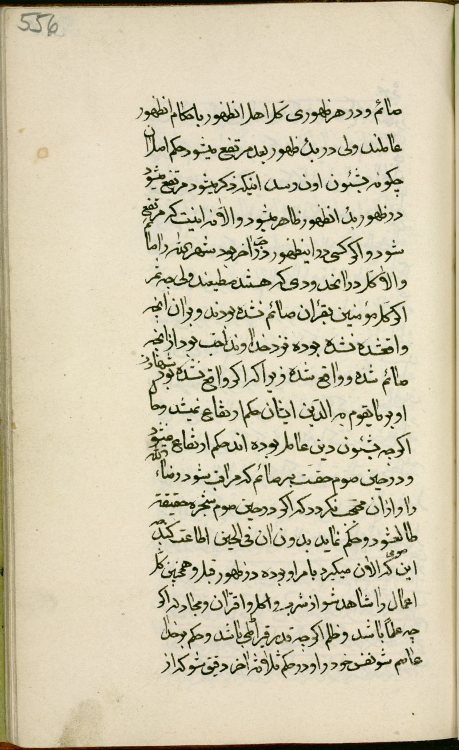 556
صائم و در هر ظهوری کل اهل انظهور باحکام انظهور
عاملند ولی در بدء ظهور بعد مرتفع میشود حکم اصل ان
چگونه شئون اون رسد اینکه ذکر میشود مرتفع میشود
در ظهور بدء انظهور ظاهر میشود والا نه اینست که مرتفع
شود و اگر کسی در اینظهور درک اخر بود شهر الله را صائم
والا کل در انحدودی که هستند مطیعند ولی چه ثمر
اگر کل مؤمنین بقران صائم نشده بودند و بران انچه
واقعشده نشده بوده نزد خداوند احب بود از انچه
صائم شده و واقع شده زیرا که اگر واقع نشده بود شهداء
او و ما یقوم به الدین ایشان حکم ارتفاع نمیشد و حال
اگرچه بشئون دین عامل بوده اند حکم ارتفاع میشود
و در حین صوم حقست بر صائم که مراقب شود رضاء الله
را و از ان محتجب نگردد که اگر در حین صوم شجره حقیقة
طالعشود و حکم نماید بدون ان فی الحین اطاعت کند چه
این صومی که الان میگیرد بامر او بوده در ظهور قبل و همچنین کل
اعمال را مشاهد شو از شرب و اکل و اقران و مجادله اگر
چه علما باشد و ظلم اگرچه قدر قیراطی باشد و حکم بدخل
عاصم شو نفس خود را و در حکم ثلاثه اخر دقیق شو که از